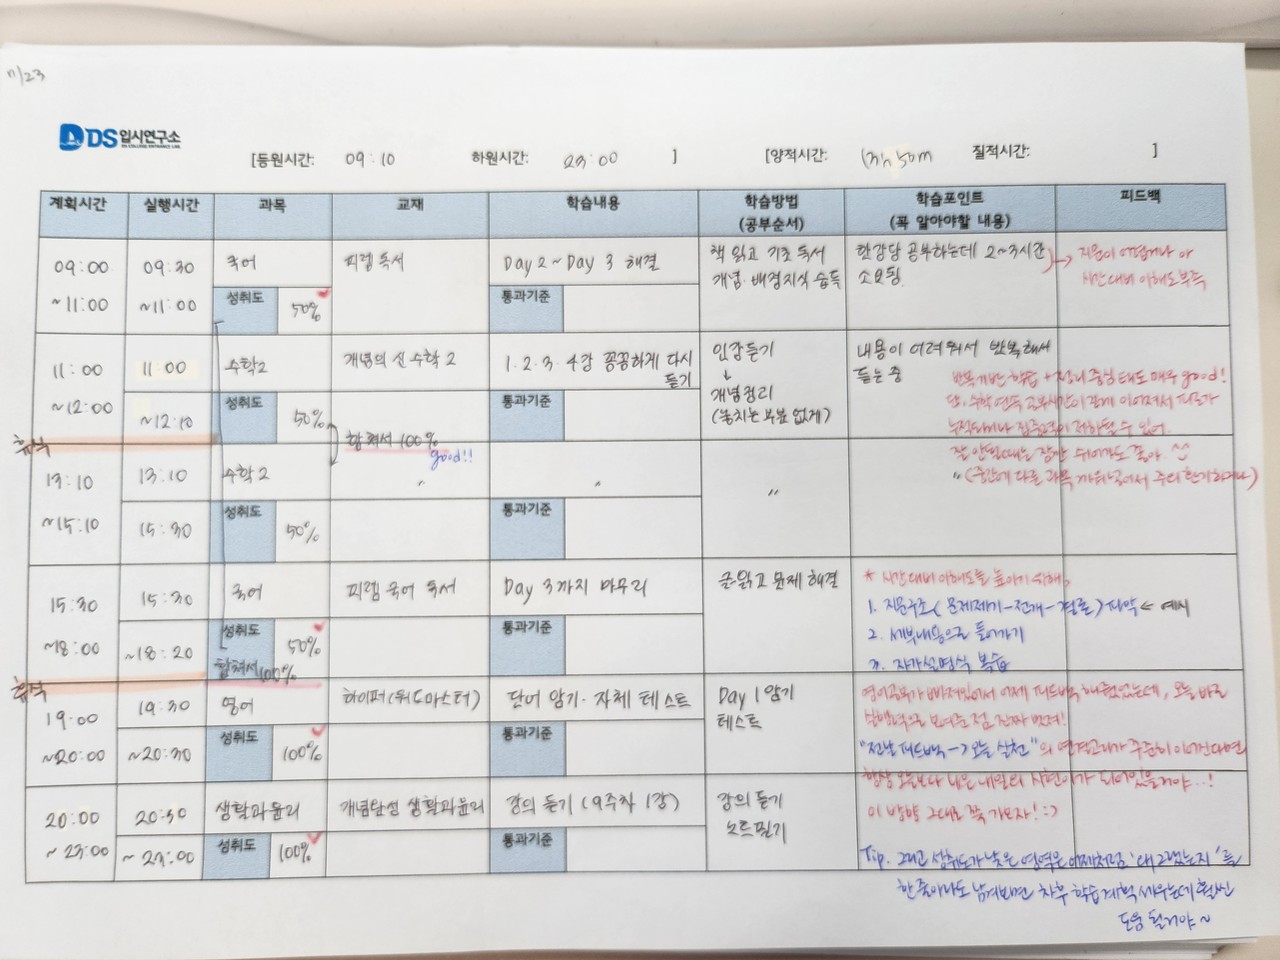 11/23
DS 입시연구소
DS COLLEGE ENTRANCE LAB.
[등원시간: 09:10 하원시간: 23:00 ] [양적시간: 50m 질적시간: ]
계획시간 실행시간 과목 교재 학습내용 학습방법 (공부순서) 학습포인트 (꼭 알아야할 내용) 피드백
09:00 ~11:00
09:30 ~11:00
국어
피램 독서
Day 2 ~ Day 3 해결
책 읽고 기초 독서
개념·배경지식 습득
한강당 공부하는데 2~3시간
소요됨
→ 지문이 어렵거나 아
시간대비 이해도 부족
성취도 50%
통과기준
11:00 ~12:00
11:00 ~12:10
수학2
개념의 신 수학 2
1. 2. 3. 4강 꼼꼼하게 다시
듣기
인강듣기
↓
개념정리
(놓치는 부분 없게)
내용이 어려워서 반복해서
듣는 중
반복기반 학습 + 정리 중심 태도 매우 good!
단, 수학 연속 공부시간이 길게 이어져서 피로가
누적되거나 집중력이 저하될 수 있어.
잘 안될때는 잠깐 쉬어가도 좋아.
" (중간에 다른 과목 끼워넣어서 주의 환기하거나)
성취도 50%
통과기준
합쳐서 100%
good!!
휴식
13:10 ~15:10
13:10
15:30
수학2
"
"
"
성취도 50%
통과기준
15:30 ~18:00
15:30 ~18:20
국어
피램 국어 독서
Day 3까지 마무리
글읽고 문제 해결
* 시간대비 이해도를 높이기 위해,
1. 지문구조( 문제제기-전개-결론) 파악 ← 예시
2. 세부내용으로 들어가기
3. 자가설명식 복습
성취도 50%
합쳐서 100%
통과기준
휴식
19:00 ~20:00
19:30 ~20:30
영어
하이퍼(워드마스터)
단어 암기· 자체 테스트
Day 1 암기
테스트
영어공부가 빠져있어서 어제 피드백 해줬었는데, 오늘 바로
실행력으로 보여준 점 진짜 멋져!
"전날 피드백 -> 오늘 실천"의 연결고리가 꾸준히 이어진다면
항상 오늘보다 나은 내일의 시현이가 되어있을거야..!
이 방향 그대로 쭉 가보자! :)
성취도 100%
통과기준
20:00 ~ 23:00
20:50 ~ 23:00
생활과윤리
개념완성 생활과윤리
강의 듣기 (9주차 1강)
강의 듣기
노트필기
성취도 100%
통과기준
Tip. 그리고 성취도가 낮은 영역은 어제처럼 '왜 그랬는지'를
한 줄이라도 남겨보면 차후 학습 계획 세우는데 훨씬
도움 될거야~